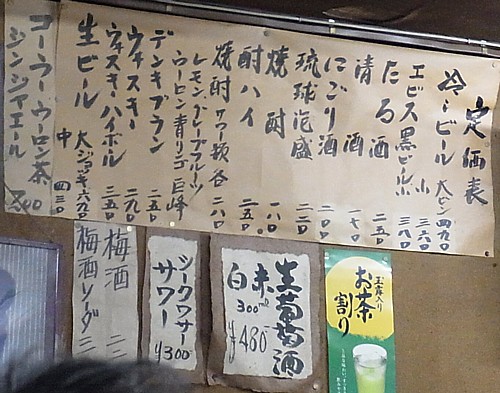 定価表
冷ビール 大ビン 四九〇
小 三六〇
エビス黒ビール小 三八〇
たる酒 二五〇
清酒 一七〇
にごり酒 二〇〇
琉球泡盛 二二〇
焼酎 一八〇
酎ハイ 二五〇
焼酎サワー数各 二八〇
レモン、グレープフルーツ
ウーロン青リンゴ巨峰
デンキブラン 二五〇
ウイスキー 二九〇
ウイスキーハイボール 三五〇
生ビール 大ジョッキ 六八〇
中 四三〇
コーラーウーロン茶
ジンジャエール 200
梅酒
梅酒ソーダ
シークワサー
サワー
¥300
生葡萄酒
赤
白
300ml
¥480
玉露入り
お茶割り